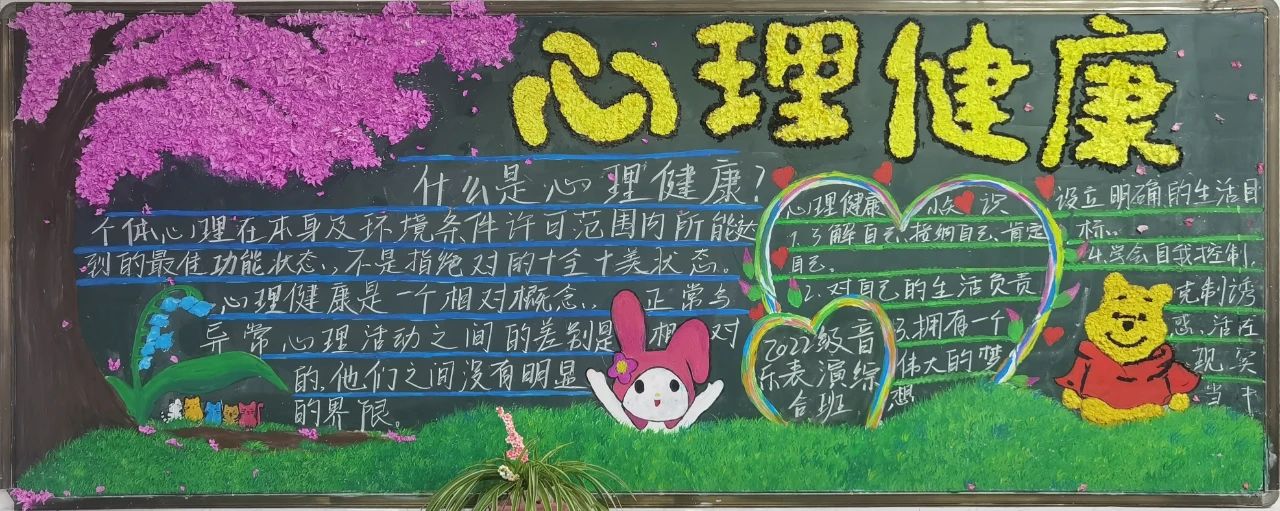 心理健康
什么是心理健康?
个体心理在本身及环境条件许可范围内所能达
到的最佳功能状态,不是指绝对的十全十美状态。
心理健康是一个相对概念,正常与
异常心理活动之间的差别是相对
的,他们之间没有明显
的界限。
心理健康小知识
1.了解自己、接纳自己、肯定
自己。
2.对自己的生活负责
3.拥有一个
伟大的梦
想
2022级音
乐表演综
合班
设立明确的生活目
标。
4.学会自我控制,
克制诱
惑、活在
现实
当中